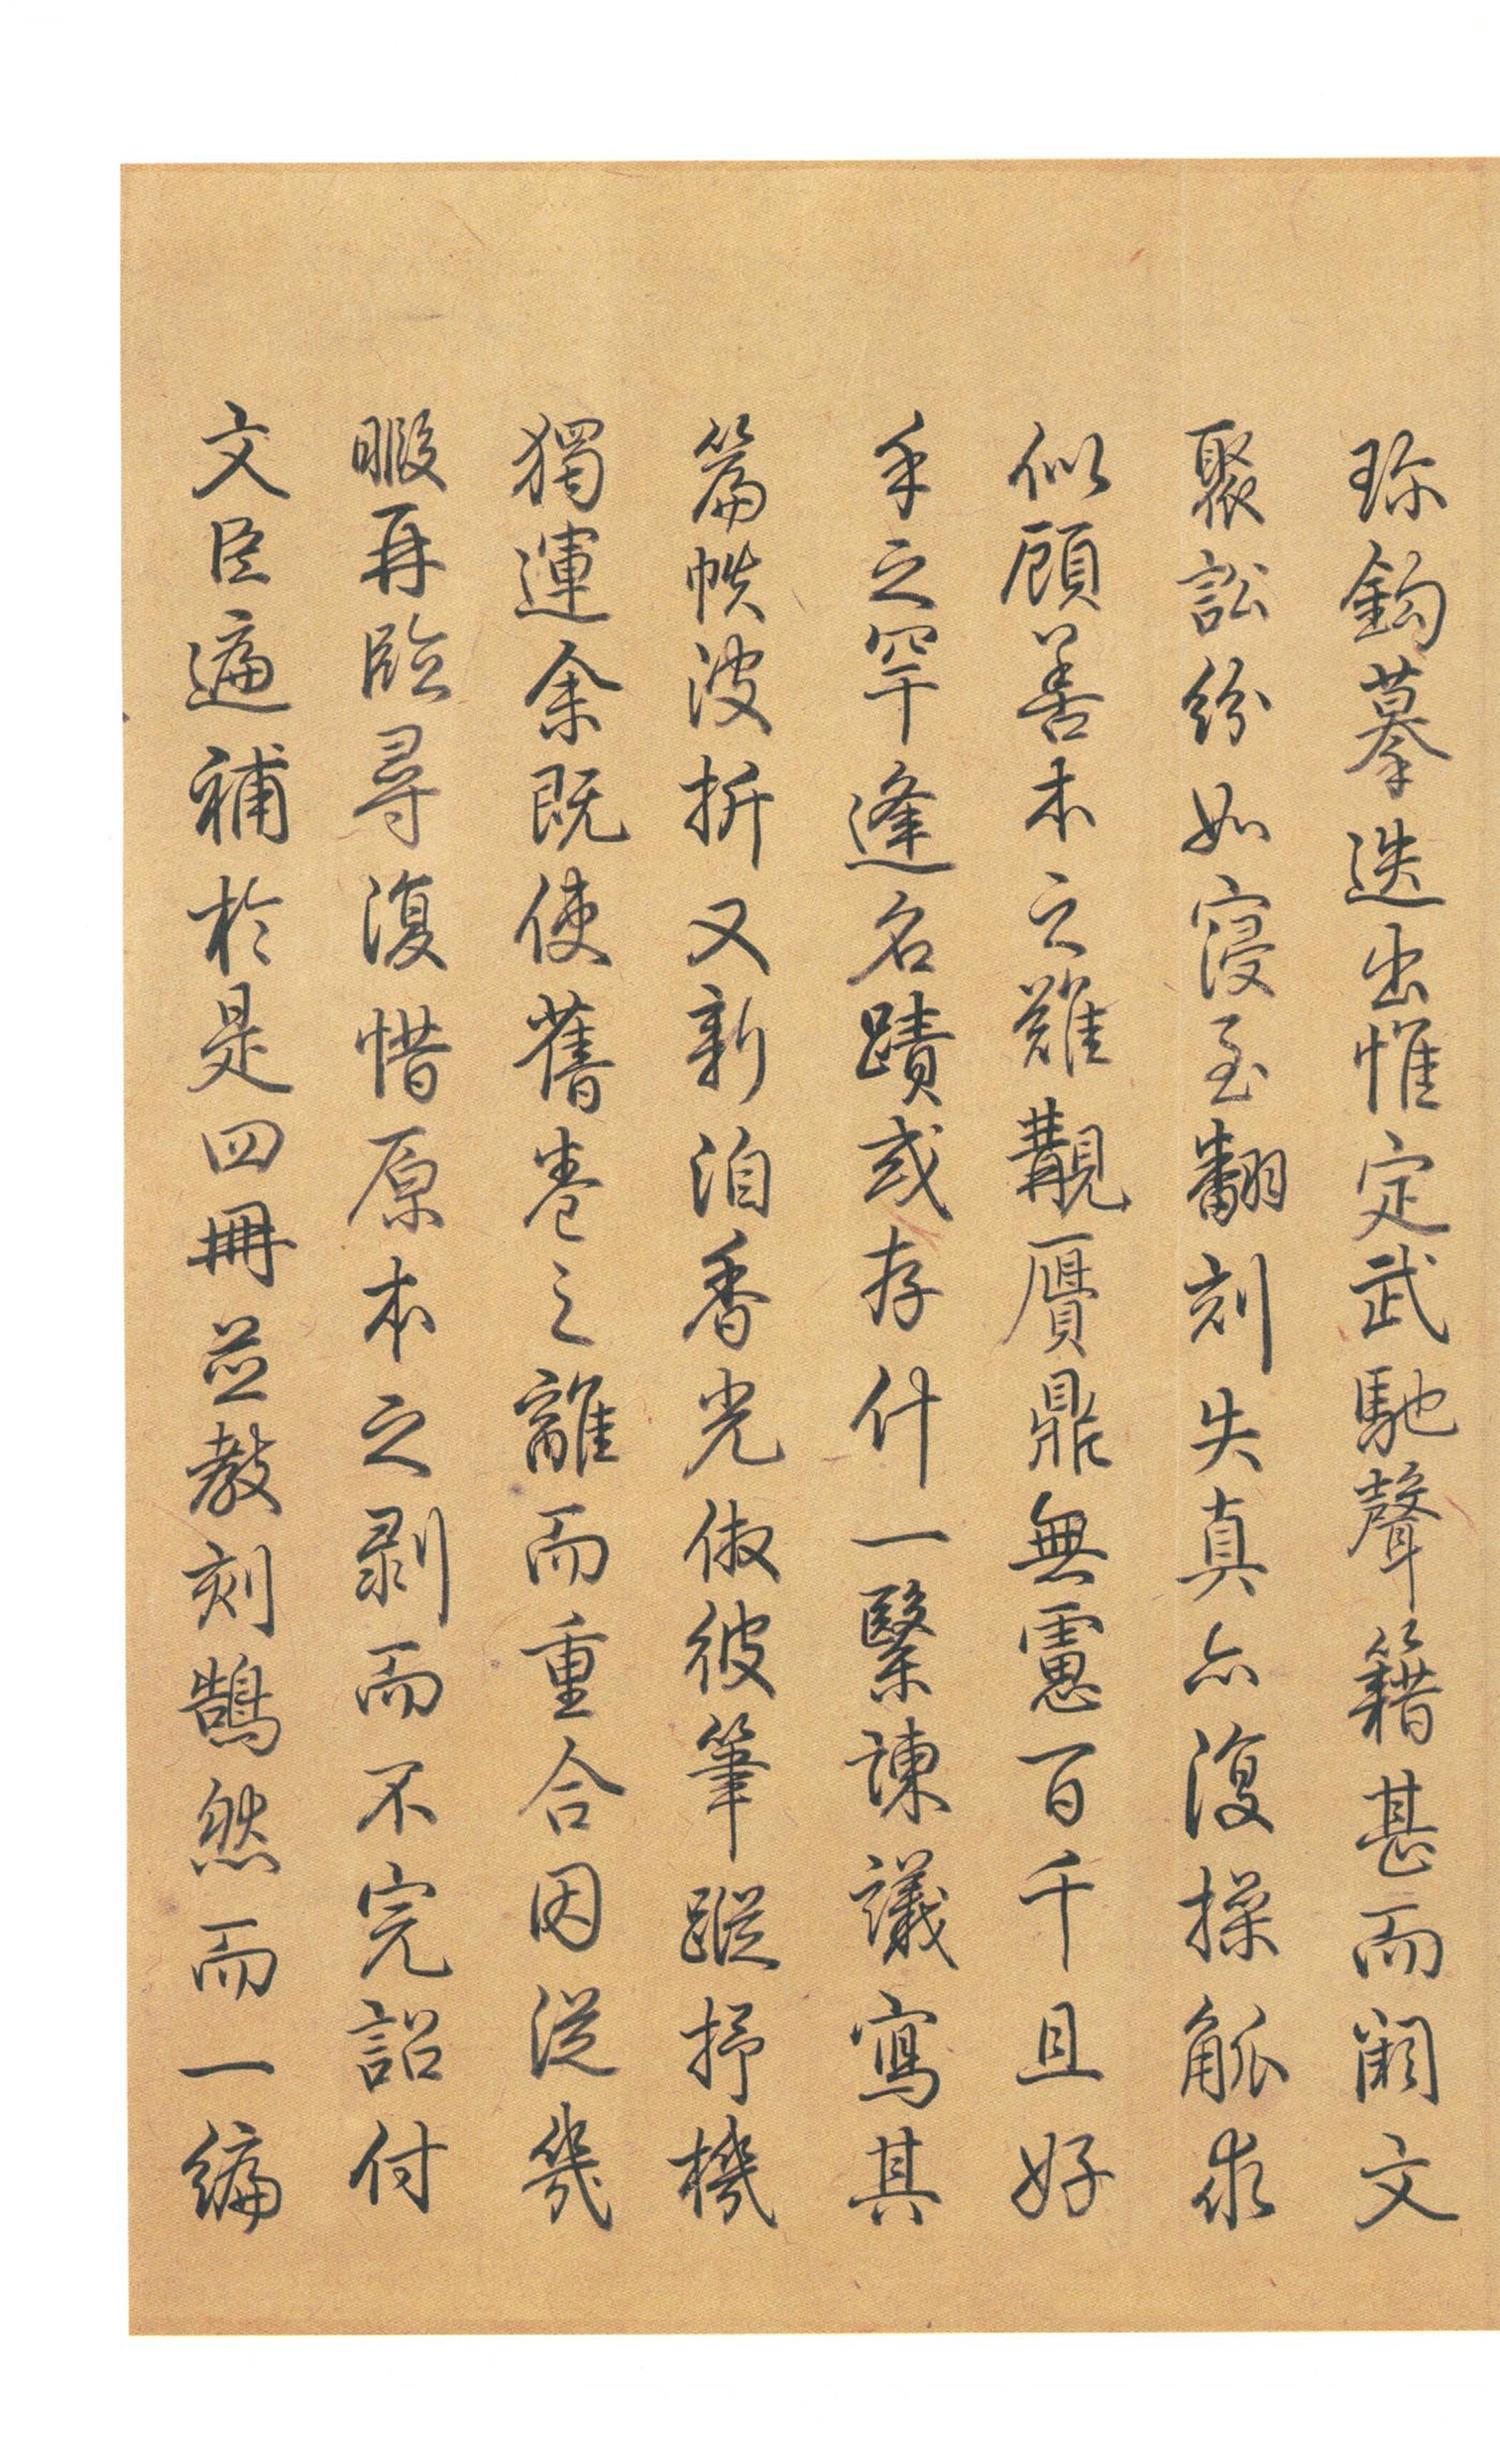 珎鈎摹迭出惟定武馳聲籍甚而闕文
聚訟紛如寖至翻刻失真亦復操觚求
似顧善本之難覯贋鼎無慮百千且好
手之罕逢名蹟或存什一繄諫議寫其
篇帙波折又新洎香光倣彼筆蹤抒機
獨運余既使舊卷之離而重合因從幾
暇再臨尋復惜原本之剥而不完詔付
文臣遍補於是四冊並教刻鵠然而一編